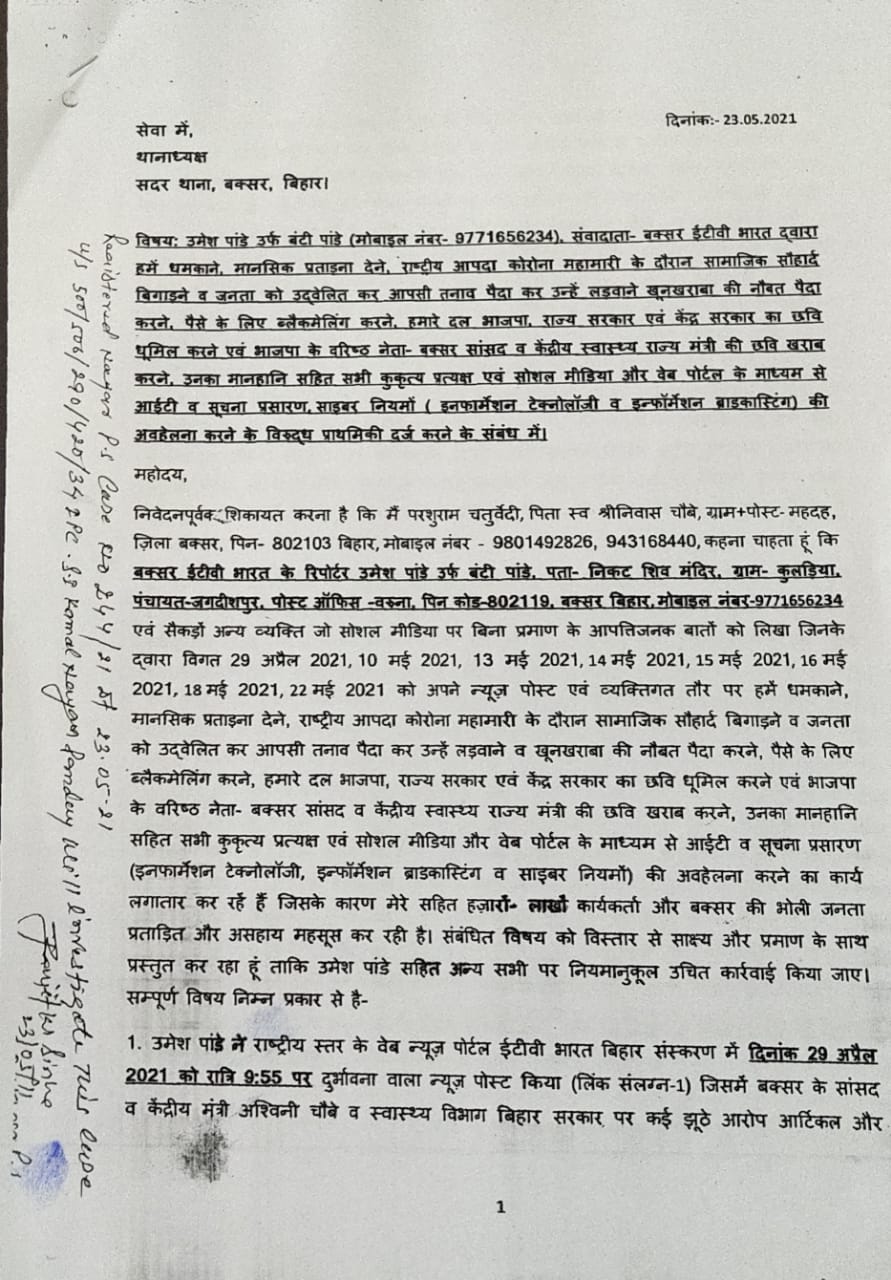 दिनांक:- 23.05.2021
सेवा में,
थानाध्यक्ष
सदर थाना, बक्सर, बिहार।
विषय: उमेश पांडे उर्फ बंटी पांडे (मोबाइल नंबर- 9771656234), संवादाता- बक्सर ईटीवी भारत द्वारा
हमें धमकाने, मानसिक प्रताइना देने, राष्ट्रीय आपदा कोरोना महामारी के दौरान सामाजिक सौहार्द
बिगाड़ने व जनता को उद्वेलित कर आपसी तनाव पैदा कर उन्हें लड़वाने खूनखराबा की नौबत पैदा
करने, पैसे के लिए ब्लैकमेलिंग करने, हमारे दल भाजपा, राज्य सरकार एवं केंद्र सरकार का छवि
धूमिल करने एवं भाजपा के वरिष्ठ नेता- बक्सर सांसद व केंद्रीय स्वास्थ्य राज्य मंत्री की छवि खराब
करने, उनका मानहानि सहित सभी कुकृत्य प्रत्यक्ष एवं सोशल मीडिया और वेब पोर्टल के माध्यम से
आईटी व सूचना प्रसारण, साइबर नियमों ( इनफार्मेशन टेक्नोलॉजी व इन्फॉर्मेशन ब्राडकास्टिंग) की
अवहेलना करने के विरुद्ध प्राथमिकी दर्ज करने के संबंध में।
महोदय,
निवेदनपूर्वक शिकायत करना है कि मैं परशुराम चतुर्वेदी, पिता स्व श्रीनिवास चौबे, ग्राम+पोस्ट- महदह,
ज़िला बक्सर, पिन- 802103 बिहार, मोबाइल नंबर - 9801492826, 943168440, कहना चाहता हूं कि
बक्सर ईटीवी भारत के रिपोर्टर उमेश पांडे उर्फ बंटी पांडे, पता- निकट शिव मंदिर, ग्राम- कुलड़िया,
पंचायत-जगदीशपुर, पोस्ट ऑफिस -वरुना, पिन कोड-802119, बक्सर बिहार, मोबाइल नंबर-9771656234
एवं सैकड़ों अन्य व्यक्ति जो सोशल मीडिया पर बिना प्रमाण के आपत्तिजनक बातों को लिखा जिनके
द्वारा विगत 29 अप्रैल 2021, 10 मई 2021, 13 मई 2021, 14 मई 2021, 15 मई 2021, 16 मई
2021, 18 मई 2021, 22 मई 2021 को अपने न्यूज़ पोस्ट एवं व्यक्तिगत तौर पर हमें धमकाने,
मानसिक प्रताइना देने, राष्ट्रीय आपदा कोरोना महामारी के दौरान सामाजिक सौहार्द बिगाड़ने व जनता
को उद्वेलित कर आपसी तनाव पैदा कर उन्हें लड़वाने व खूनखराबा की नौबत पैदा करने, पैसे के लिए
ब्लैकमेलिंग करने, हमारे दल भाजपा, राज्य सरकार एवं केंद्र सरकार का छवि धूमिल करने एवं भाजपा
के वरिष्ठ नेता- बक्सर सांसद व केंद्रीय स्वास्थ्य राज्य मंत्री की छवि खराब करने, उनका मानहानि
सहित सभी कुकृत्य प्रत्यक्ष एवं सोशल मीडिया और वेब पोर्टल के माध्यम से आईटी व सूचना प्रसारण
(इनफार्मेशन टेक्नोलॉजी, इन्फॉर्मेशन ब्राडकास्टिंग व साइबर नियमों) की अवहेलना करने का कार्य
लगातार कर रहें हैं जिसके कारण मेरे सहित हज़ारों- लाखों कार्यकर्ता और बक्सर की भोली जनता
प्रताड़ित और असहाय महसूस कर रही है। संबंधित विषय को विस्तार से साक्ष्य और प्रमाण के साथ
प्रस्तुत कर रहा हूं ताकि उमेश पांडे सहित अन्य सभी पर नियमानुकूल उचित कार्रवाई किया जाए।
सम्पूर्ण विषय निम्न प्रकार से है-
1. उमेश पांडे ने राष्ट्रीय स्तर के वेब न्यूज़ पोर्टल ईटीवी भारत बिहार संस्करण में दिनांक 29 अप्रैल
2021 को रात्रि 9:55 पर दुर्भावना वाला न्यूज़ पोस्ट किया (लिंक संलग्न-1) जिसमें बक्सर के सांसद
व केंद्रीय मंत्री अश्विनी चौबे व स्वास्थ्य विभाग बिहार सरकार पर कई झूठे आरोप आर्टिकल और
1
Registered Nagar P.S Case No 244/21 dt 23.05.21
u/s 500/506/290/420/34 IPC. S.I Komal Nayan Pandey will investigate this case
23/05/21